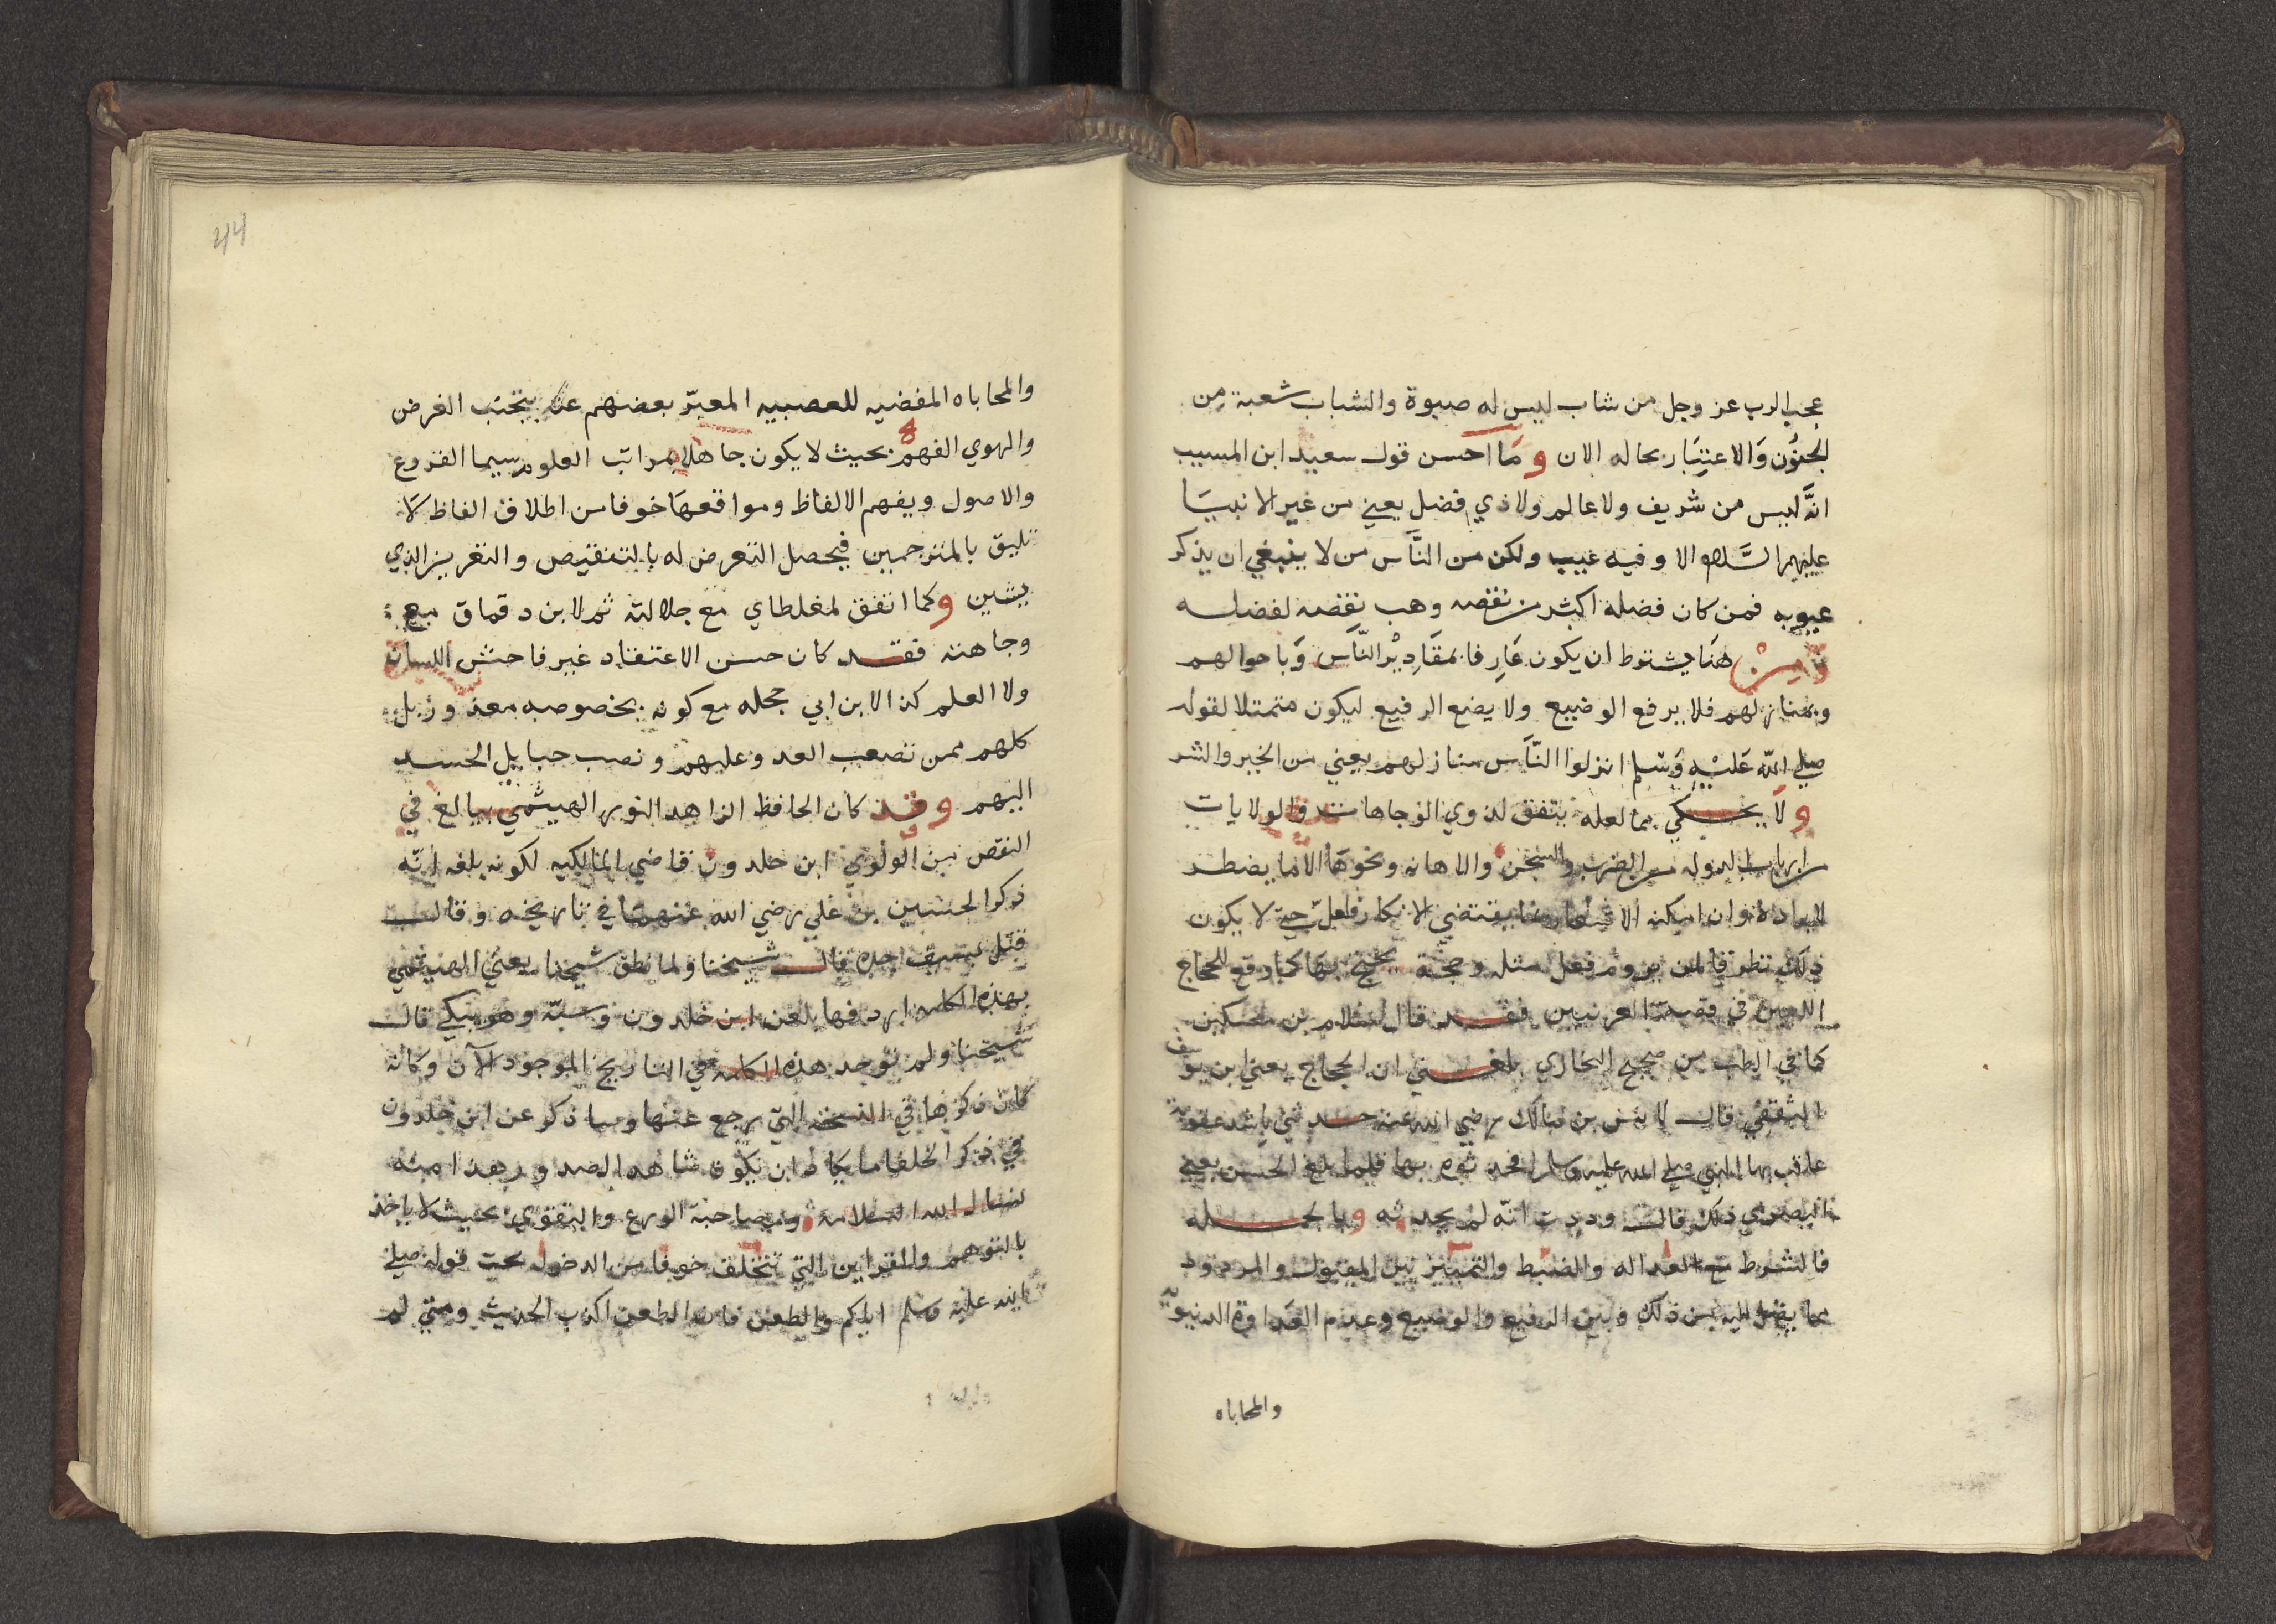 عجب الرب عز وجل من شاب ليس له صبوة والشباب شعبة من
الجنون والاعتبار بحاله الان وما احسن قول سعيد ابن المسيب
انه ليس من شريف ولا عالم ولا ذي فضل يعني من غير الانبيا
عليهم السلام الا وفيه عيب ولكن من الناس من لا ينبغي ان يذكر
عيوبه فمن كان فضله اكثر من نقصه وهب نقصه لفضله
ومن هنا يشترط ان يكون عارفا بمقادير الناس وباحوالهم
وبمنازلهم فلا يرفع الوضيع ولا يضع الرفيع ليكون متمثلا لقوله
صلى الله عليه وسلم انزلوا الناس منازلهم يعني من الخير والشر
ولا يحكي بما لعله يتفق لذوي الوجاهات والولايات
من ارباب الدوله من الضرب والسجن والاهانه ونحوها الا ما يضطر
لايراده وان امكنه الاشعار بما يقتضي الانكار فعل حتى لا يكون
ذلك تطرقا لمن يروم فعل مثله وحجة يحتج بها كما وقع للحجاج
اللعين في قصة العرنيين فقد قال سلام بن مسكين
كما في الطب من صحيح البخاري بلغني ان الحجاج يعني ابن يوسف
الثقفي قال لانس بن مالك رضي الله عنه حدثني باشد عقوبة
عاقب بها النبي صلى الله عليه وسلم فحدثه بها فلما بلغ الحسن يعني
البصري ذلك قال وددت انه لم يحدثه وبالجمله
فالشرط مع العداله والضبط والتمييز بين المقبول والمردود
مما يصل اليه من ذلك وبين الرفيع والوضيع وعدم العداوة الدنيويه
والمحاباه
44
والمحاباه المفضيه للعصبيه المعبر بعضهم عنه بتجنب الغرض
والهوى الفهم بحيث لا يكون جاهلا بمراتب العلوم سيما الفروع
والاصول ويفهم الالفاظ ومواقعها خوفا من اطلاق الفاظ لا
تليق بالمترجمين فيحصل التعرض له بالتنقيص والتعزير الذي
يشين وكما اتفق لمغلطاي مع جلالته ثم لابن دقماق مع
وجاهته فقد كان حسن الاعتقاد غير فاحش اللسان
ولا العلم كذا لابن ابي حجله مع كونه بخصوصه معذور بل
كلهم ممن تصعب العدو عليهم ونصب حبايل الحسد
اليهم وقد كان الحافظ الزاهد النور الهيثمي يبالغ في
النقص من الولوي ابن خلدون قاضي المالكيه لكونه بلغه انه
ذكر الحسين بن علي رضي الله عنهما في تاريخه وقال
قتل بسيف جده قال شيخنا ولما نطق شيخنا يعني الهيثمي
بهذه الكلمه اردفها بلعن ابن خلدون وسبه وهو يبكي قال
شيخنا ولم توجد هذه الكلمه في التاريخ الموجود الآن وكانه
كان ذكرها في النسخه التي رجع عنها وما ذكر عن ابن خلدون
في ذكر الخلفا ما يكاد ان يكون شاهد الصدور هذا منه
نسال الله السلامه ومصاحبة الورع والتقوى بحيث لا ياخذ
بالتوهم والقراين التي تتخلف خوفا من الدخول تحت قوله صلى
الله عليه وسلم اياكم والظن فان الظن اكذب الحديث ومتى لم